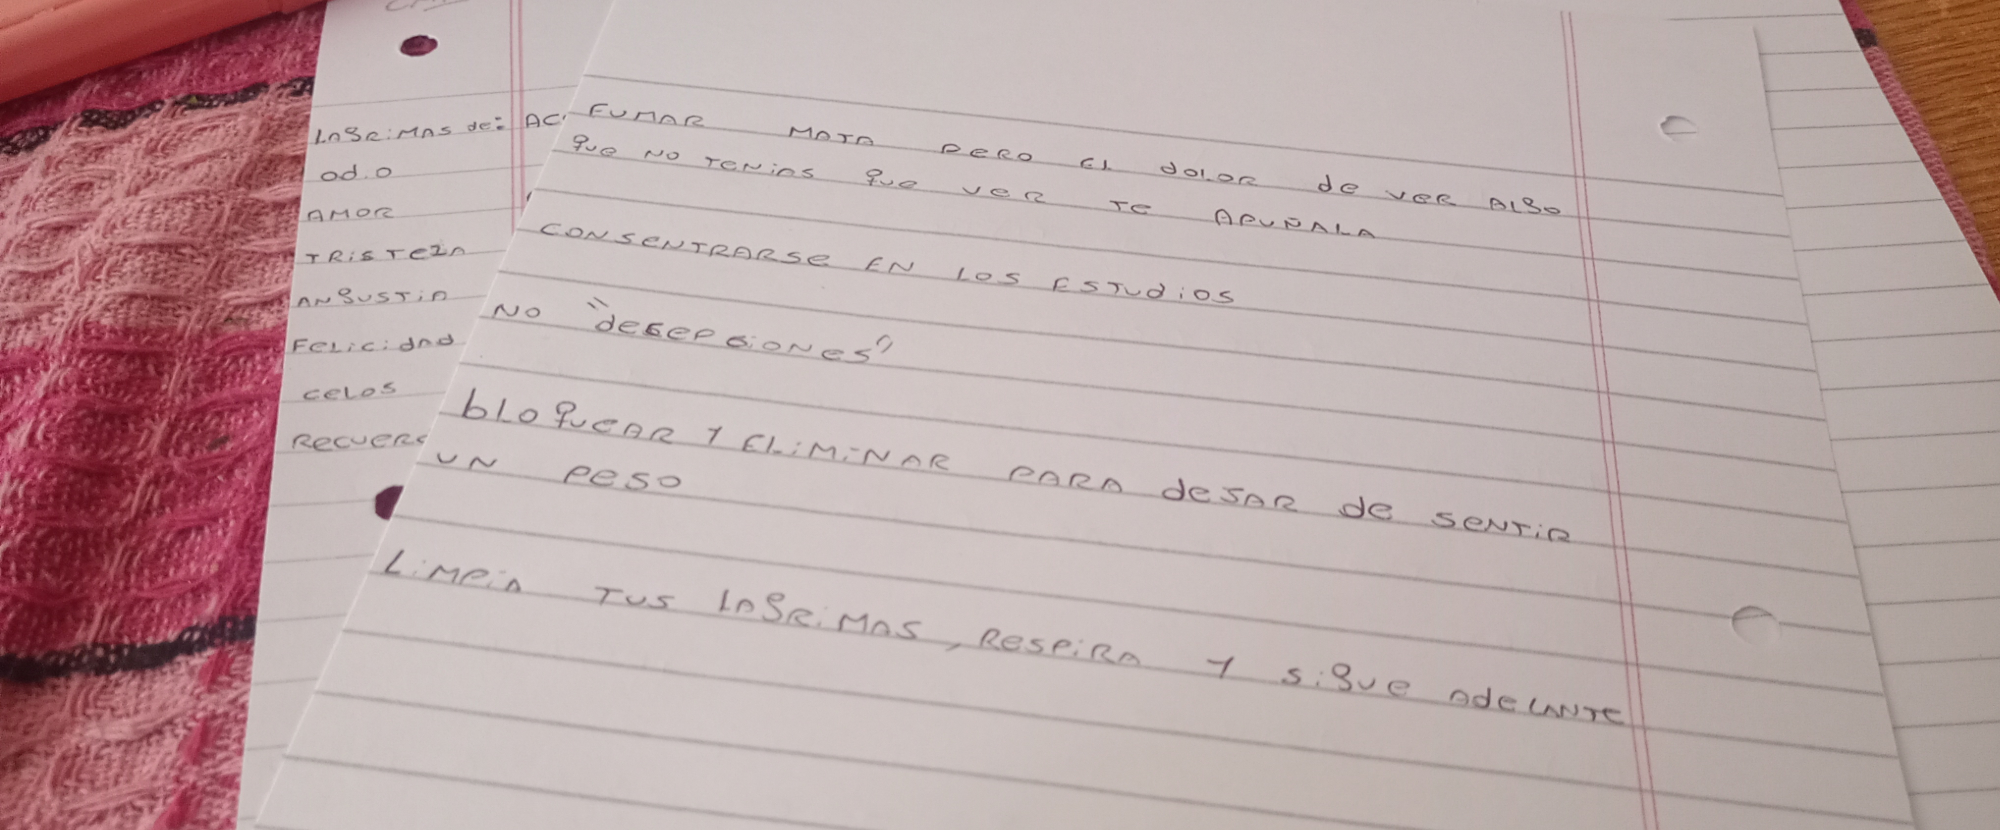 LAGRiMAS de: AC
Od.O
AMOR
TRiSTEZA
ANGUSTiA
FELiCidAd
CELOS
RECUERd
FUMAR MATA PERO EL dOLOR de VER ALGO
QUE NO TENiAS QUE VER TE APUÑALA
CONSENTRARSE EN LOS ESTUdiOS
NO "deSEPSiONES"
bLOQUEAR Y ELiMiNAR PARA deJAR de SENTiR
UN PESO
LiMPiA TUS LAGRiMAS, RESPiRA Y SiGUE AdELANTE